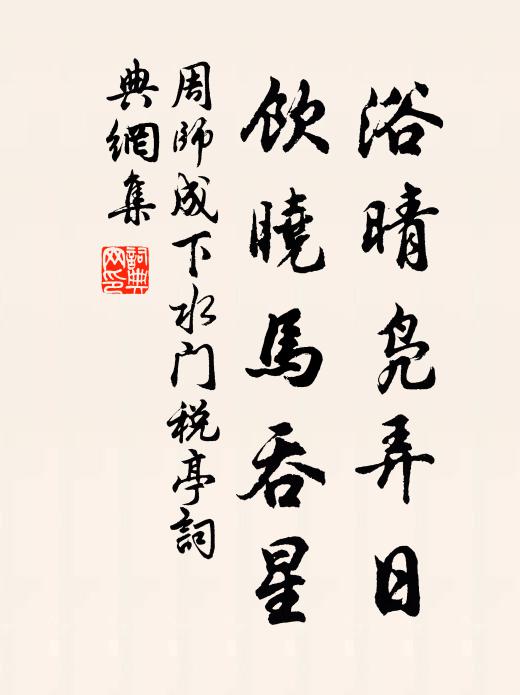 浴晴鳧弄日
飲曉馬吞星
周師成下水门税亭詞
典網集
詞典网印